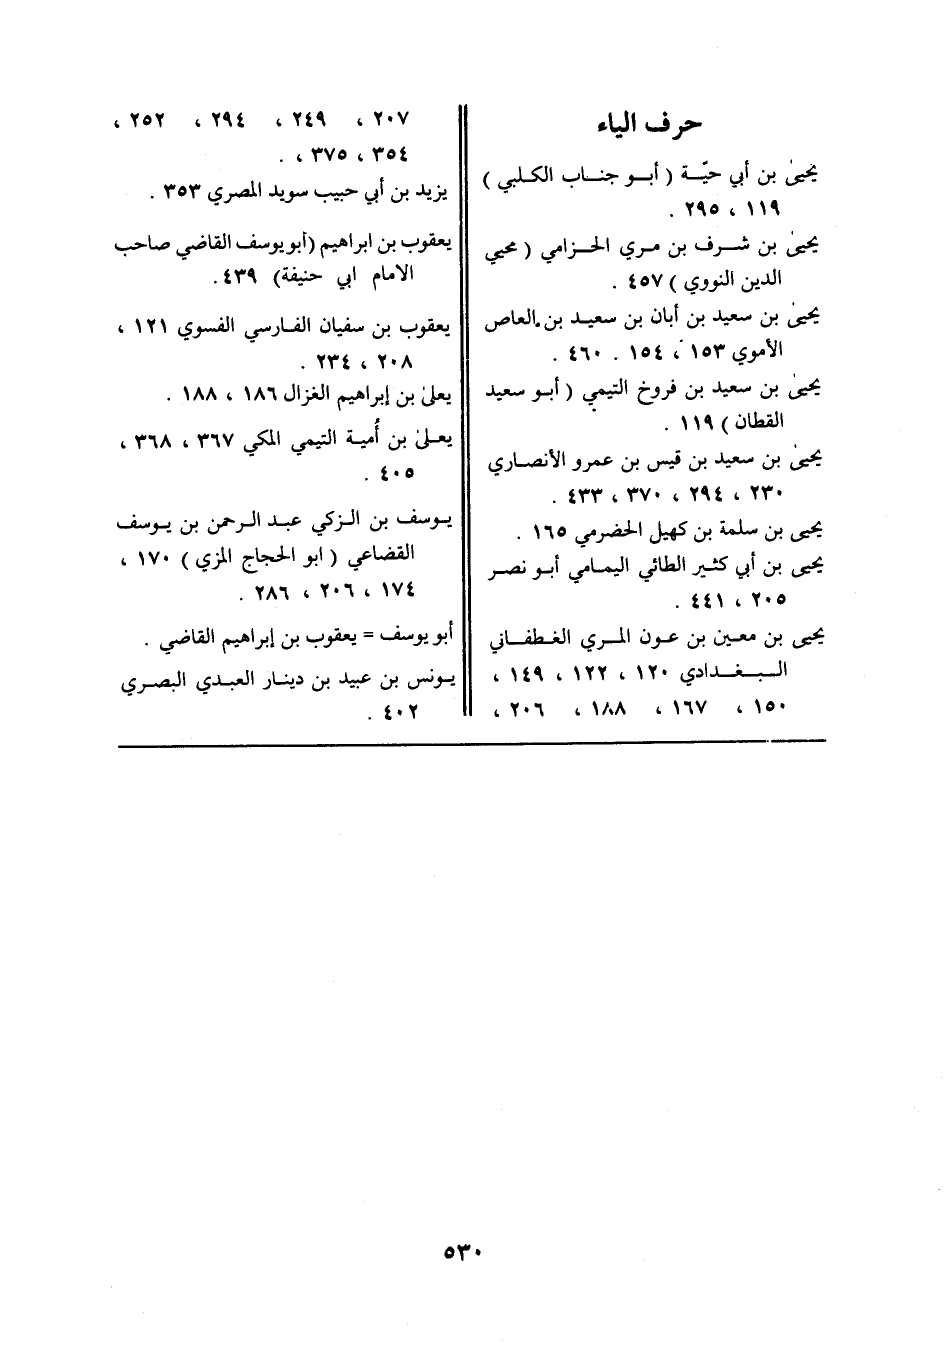 حرف الياء
يحيىٰ بن أبي حيّة ( أبـو جنـاب الكـلبي )
١١٩ ، ٢٩٥ .
يحيىٰ بن شـرف بن مـري الحـزامي ( محيي
الدين النووي ) ٤٥٧ .
يحيىٰ بن سعيد بن أبان بن سعيـد بن العاص
الأموي ١٥٣ ، ١٥٤ . ٤٦٠ .
يحيىٰ بن سعيد بن فروخ التيمي ( أبـو سعيد
القطان ) ١١٩ .
يحيىٰ بن سعيد بن قيس بن عمرو الأنصـاري
٢٣٠ ، ٢٩٤ ، ٣٧٠ ، ٤٣٣ .
يحيى بن سلمة بن كهيل الحضرمي ١٦٥ .
يحيى بن أبي كثـير الطائي اليمـامي أبـو نصـر
٢٠٥ ، ٤٤١ .
يحيى بن معـين بن عـون المـري الغـطفـاني
الـبـغـدادي ١٢٠ ، ١٢٢ ، ١٤٩ ،
١٥٠ ، ١٦٧ ، ١٨٨ ، ٢٠٦ ،
٢٠٧ ، ٢٤٩ ، ٢٩٤ ، ٢٥٢ ،
٣٥٤ ، ٣٧٥ ، .
يزيد بن أبي حبيب سويد المصري ٣٥٣ .
يعقوب بن ابراهيم (أبو يوسف القاضي صاحب
الامام ابي حنيفة) ٤٣٩ .
يعقوب بن سفيان الفـارسي الفسوي ١٢١ ،
٢٠٨ ، ٢٣٤ .
يعلىٰ بن إبراهيم الغزال ١٨٦ ، ١٨٨ .
يعـلىٰ بن أُميـة التيمي المكي ٣٦٧ ، ٣٦٨ ،
٤٠٥ .
يـوسف بن الـزكي عبـد الـرحمن بن يـوسف
القضاعي ( ابو الحجاج المزي ) ١٧٠ ،
١٧٤ ، ٢٠٦ ، ٢٨٦ .
أبو يوسف = يعقوب بن إبراهيم القاضي .
يـونس بن عبيد بن دينار العبدي البصـري
٤٠٢ .
٥٣٠